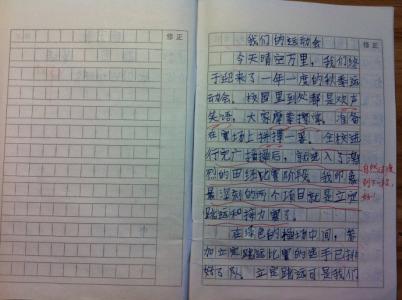 修正
修正
我们的运动会
今天晴空万里,我们终
于迎来了一年一度的秋季运
动会。校园里到处都是欢声
笑语,大家摩拳擦掌,准备
在赛场上拼搏一番。全校进
行完广播操后,就进入了激
烈的田径比赛阶段。我印象
最深刻的两个项目就是立定
跳远和接力赛了。
自然过渡
到下一段,
好!
在绿色的操场中间,参
加立定跳远比赛的选手已排
好了队。立定跳远可是我们